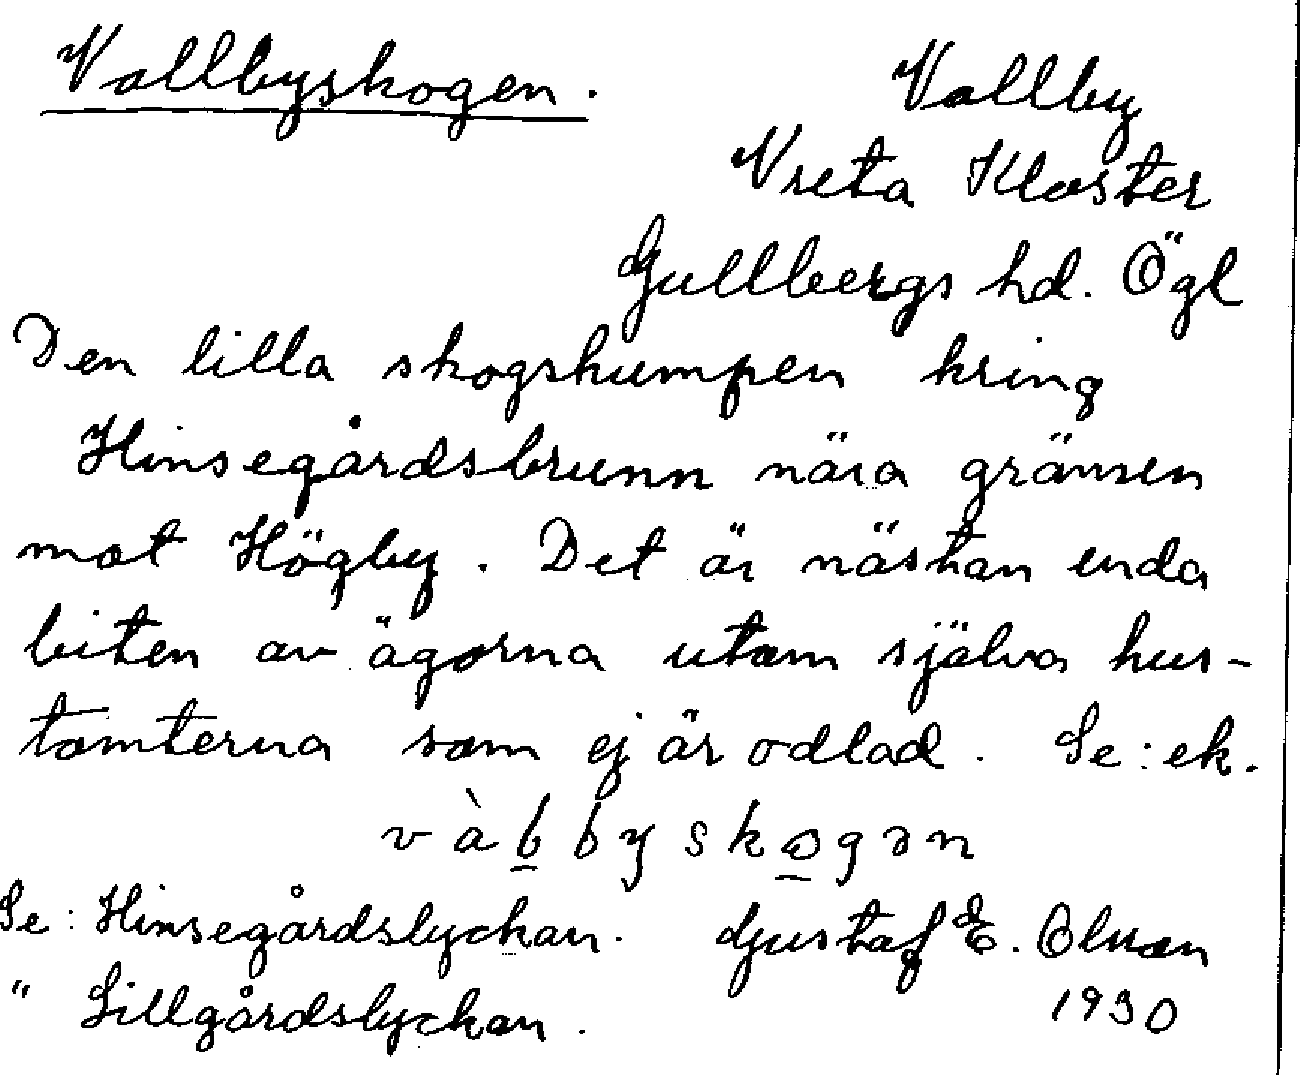 Vallbyskogen.
Vallby
Vreta Kloster
Gullbergs hd. Ögl
Den lilla skogshumpen kring
Hinsegårdsbrunn nära gränsen
mot Högby. Det är nästan enda
biten av ägorna utom själva hus-
tomterna som ej är odlad. Se: ek.
vàbbyskogən
Se: Hinsegårdslyckan. Gustaf E. Olson
" Lillgårdslyckan.
1930